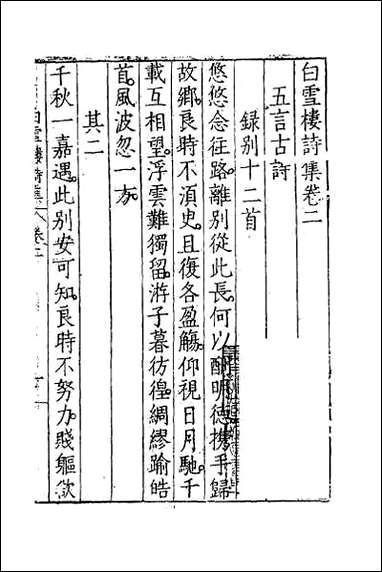 白雪樓詩集卷二
五言古詩
録别十二首
悠悠念征路。離别從此長。何以酬明德。携手歸
故鄉。良時不須臾。且復各盈觴。仰視日月馳。千
載互相望。浮雲難獨留。游子暮彷徨。綢繆踰皓
首。風波忽一方。
其二
千秋一嘉遇。此别安可知。良時不努力。賤軀欲
白雪樓詩集 卷二